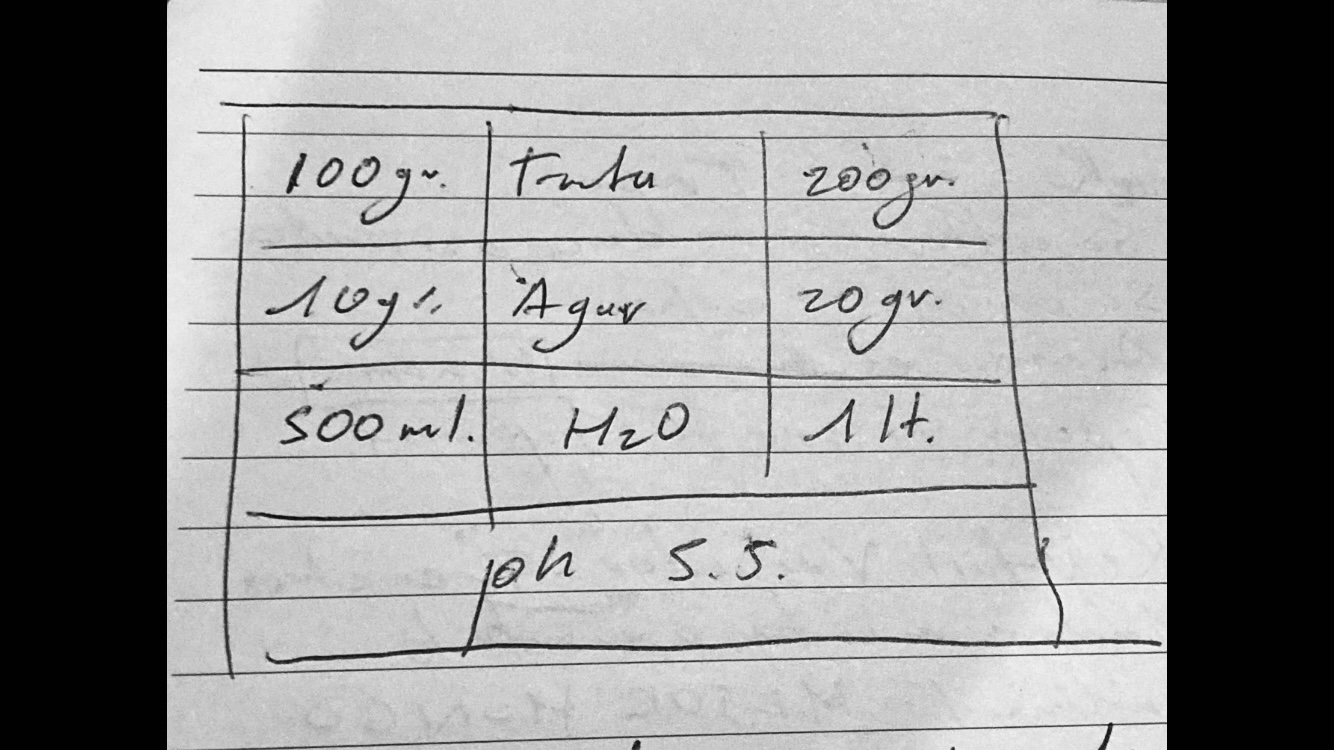 100gr. Fruta 200gr.
10gr. Agar 20gr.
500ml. H2O 1 lt.
ph 5.5.